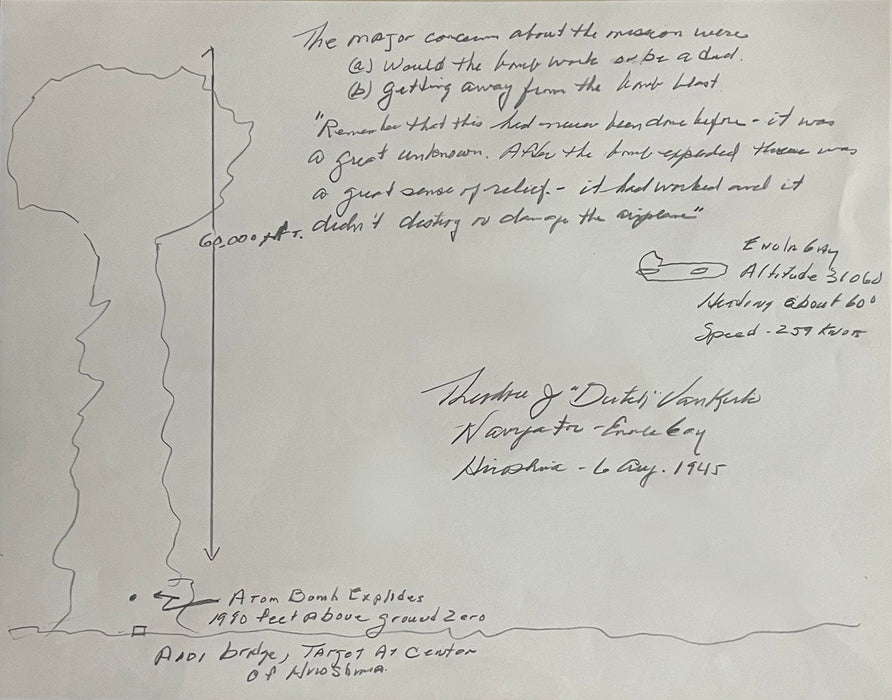 The major concern about the mission were
(a) Would the bomb work or be a dud.
(b) getting away from the bomb blast.
"Remember that this had never been done before - it was
a great unknown. After the bomb exploded there was
a great sense of relief - it had worked and it
didn't destroy or damage the airplane"
60,000 ft.
Enola Gay
Altitude 31060
Heading about 60°
Speed - 259 Knots
Theodore J "Dutch" VanKirk
Navigator - Enola Gay
Hiroshima - 6 Aug. 1945
Atom Bomb Explodes
1990 feet above ground zero
Aioi bridge, Target At Center
of Hiroshima.